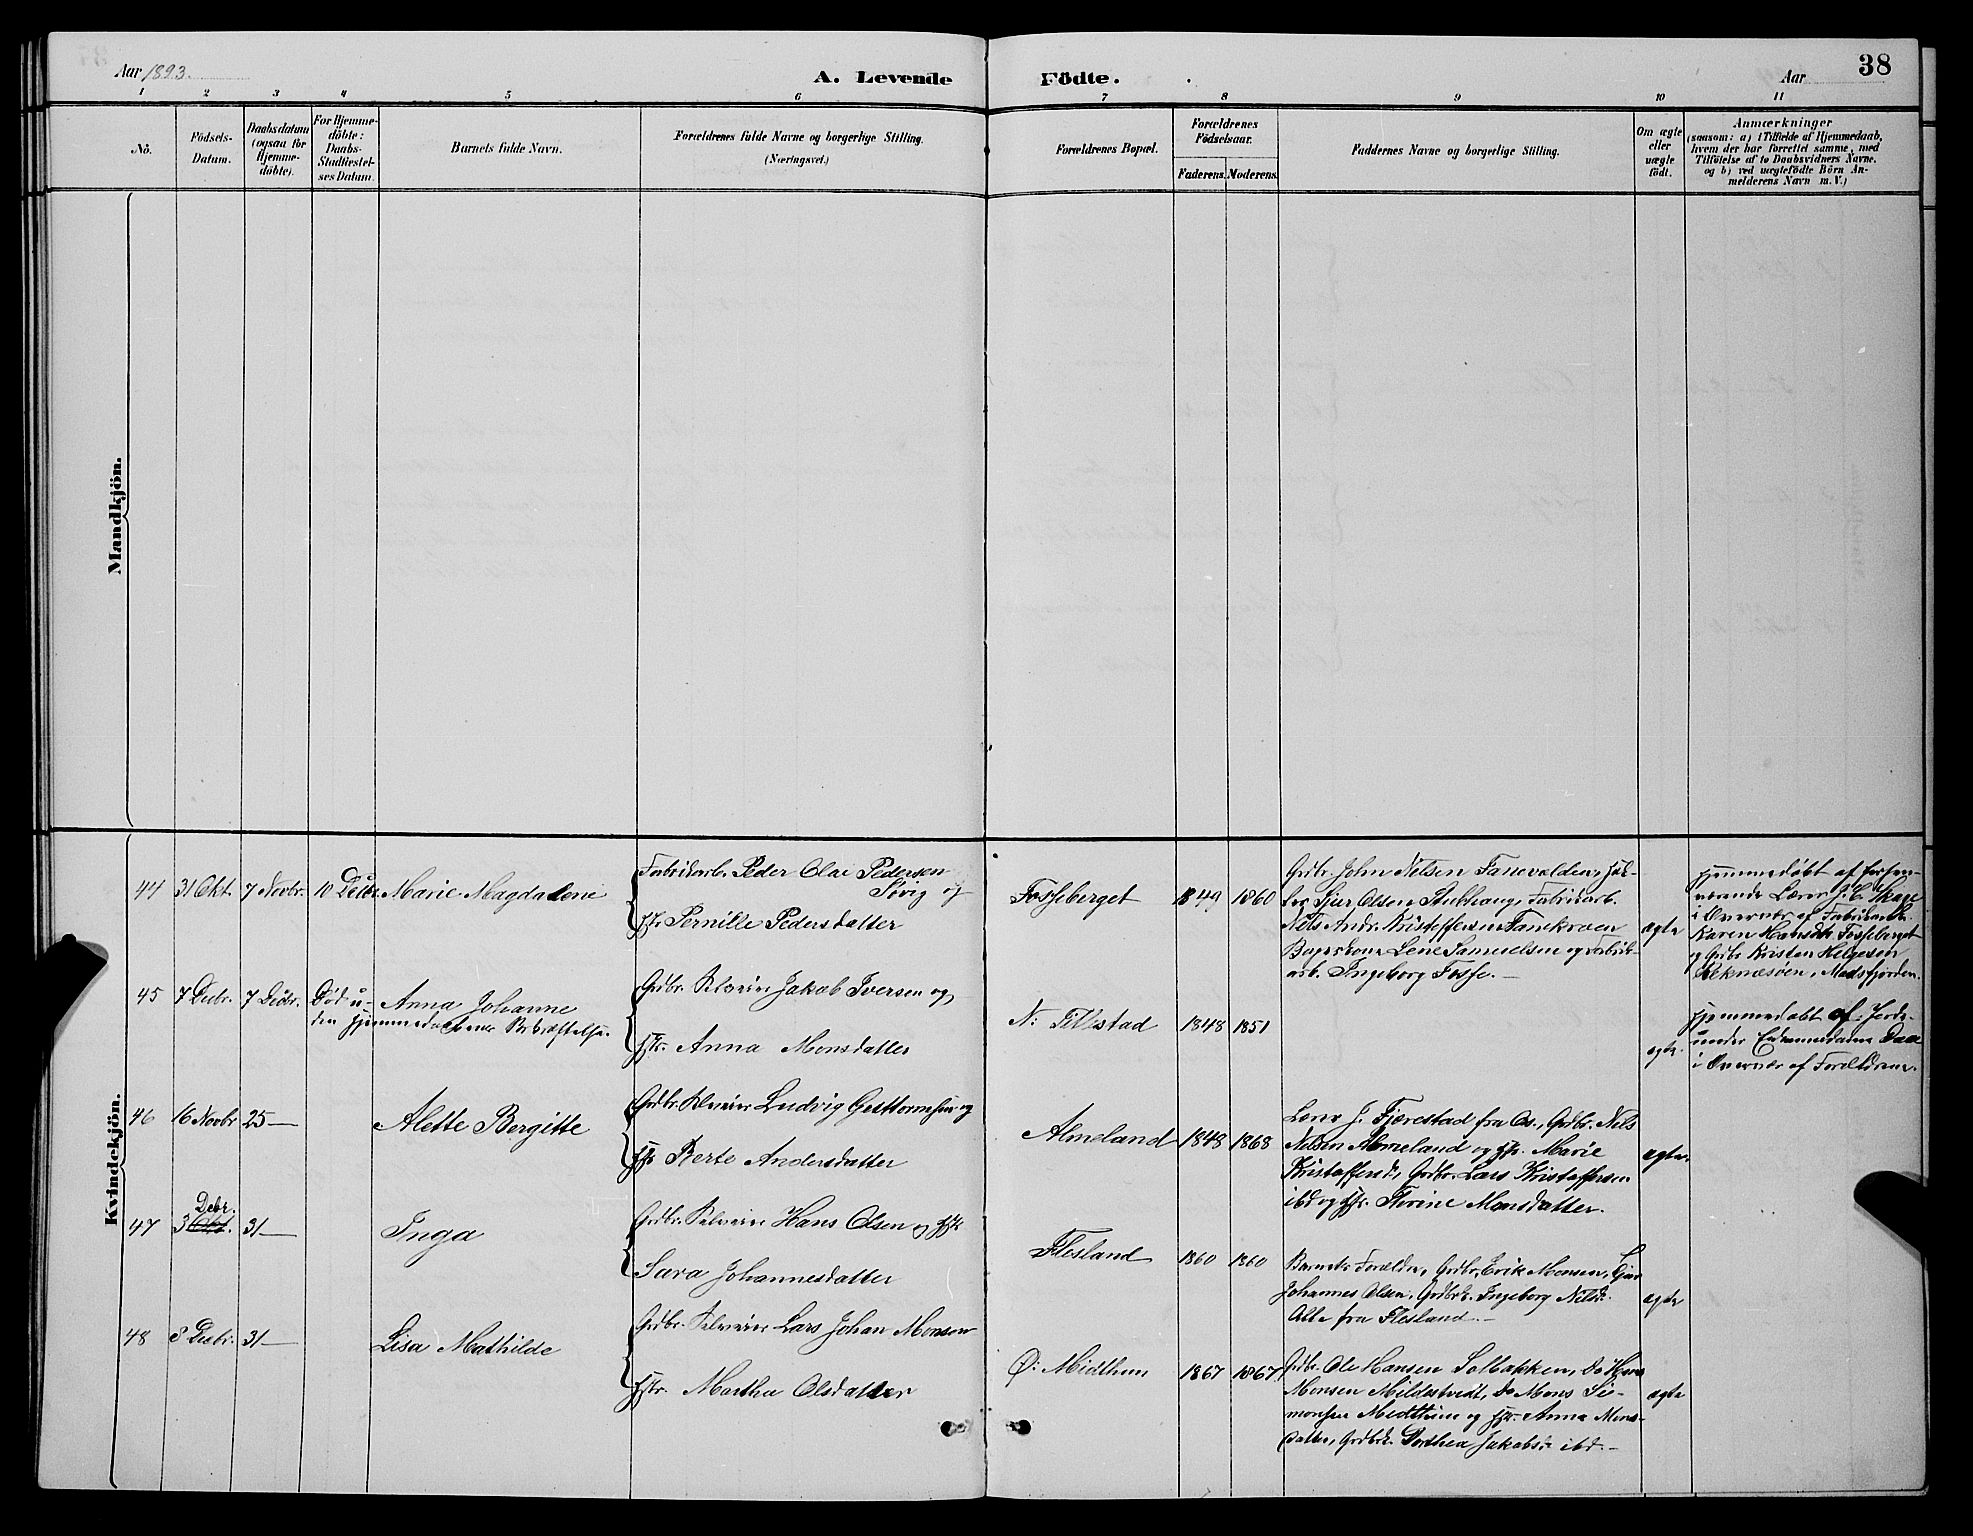 Aar 1893.
A. Levende
Födte.
Aar
38
1 2 3 4 5 6 7 8 9 10 11
No.
Födsels-
Datum.
Daabsdatum
(ogsaa for
Hjemme-
döbte).
For Hjemme-
döbte:
Daabs-
Stadfæstel-
ses Datum.
Barnets fulde Navn.
Forældrenes fulde Navne og borgerlige Stilling.
(Næringsvei.)
Forældrenes Bopæl.
Forældrenes
Födselsaar.
Faderens. Moderens.
Faddernes Navne og borgerlige Stilling.
Om ægte
eller
uægte
født.
Anmærkninger
(saasom: a) i Tilfælde af Hjemmedaab,
hvem der har forrettet samme, med
Tilföielse af to Daabsvidners Navne.
og b) ved uægtefödte Börn An-
melderens Navn m. V.)
Mandkjön.
Kvindekjön.
44 31 Okt. 7 Novbr. 10 Decbr. Marie Magdalene
Fabrikarb. Peder Olai Pedersen
Søvig og
Pernille Pedersdatter
Fosseberget 1849 1860
Grdbr. John Nilsen
Nils Andr. Kristoffersen
Lene Samuelsen og
arb. Ingeborg Fosse.
ægte
Hjemmedøbt af
Lærer J. C. Skage
i Overvær af Fabrikarb.
Karen Hansdtr Fosseberget
og Grdbr. Kristen Helgesen
45 7 Decbr. 7 Decbr. Død u-
den Hjemmedaabens Bekræftelse.
Anna Johanne
Grdbr. Jakob Iversen og
Anna Monsdatter
N: 1848 1851
ægte.
Hjemmedøbt af Jorde-
i Overvær af Forældrene.
46 16 Novbr 25 —
Alette Bergitte
Grdbr. Ludvig og
Berte Andersdatter
Almeland 1848 1868
Lærer J. Fjærestad fra Os, Grdbr. Nils
Nilsen Almeland og Marie
Grdbr. Lars Kristoffersen
ibd og Monsdatter.
ægte.
47 3 Decbr. 31 —
Inga
Grdbr. Hans Olsen og
Sara Johannesdatter
Flesland 1860 1860
Barnets Forældre, Grdbr. Erik Monsen,
Johannes Olsen, Ingeborg Nilsd.
Alle fra Flesland.—
ægte
48 8 Decbr. 31 —
Lisa Mathilde
Grdbr. Lars Johan Monsen
Martha Olsdatter
Ø: Midthun 1867 1867
Grdbr. Ole Hansen Solbakken, Do Hans
Monsen Do Mons Si-
monsen Midthun og Anna Mons-
datter, Dorthea Jakobsd. ibd —
ægte